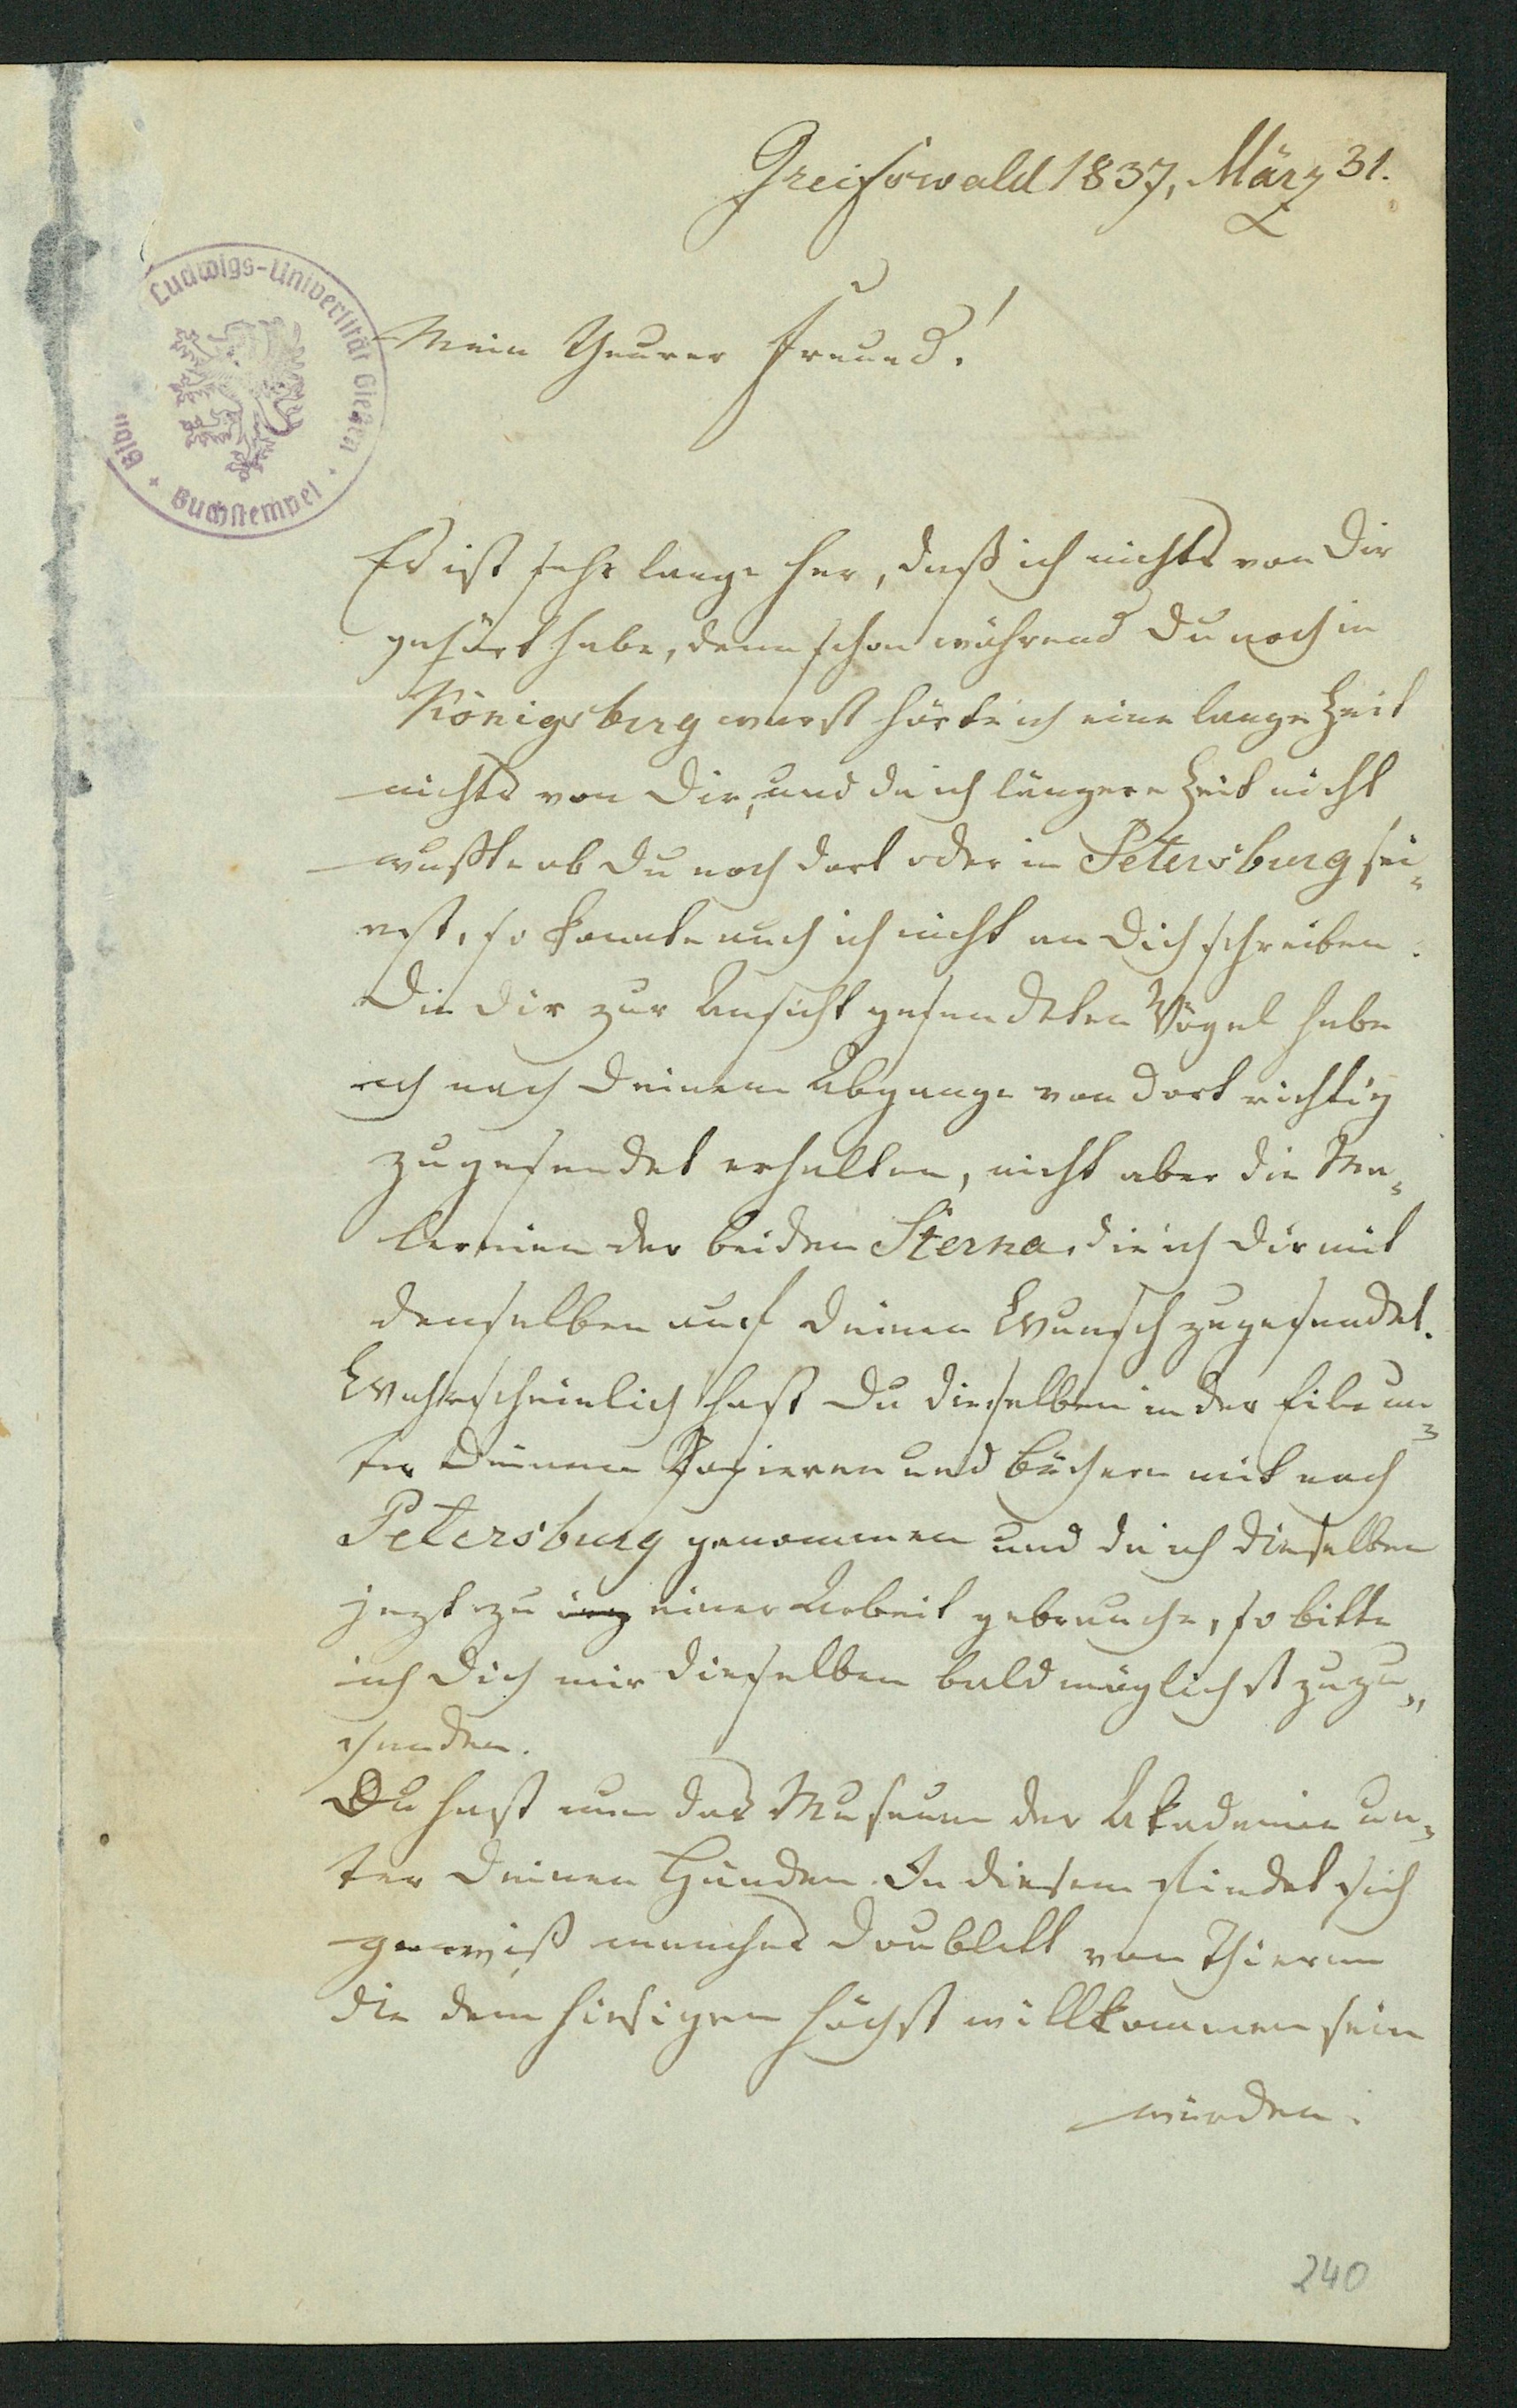 Greifswald 1837, März 31.
Ludwigs-Universität Gießen
Buchstempel
Mein Theurer Freund!
Es ist sehr lange her, daß ich nichts von Dir
gehört habe, denn schon während Du noch in
Königsberg warst hörte ich eine lange Zeit
nichts von Dir, und da ich längere Zeit nicht
wußte ob Du noch dort oder in Petersburg sei-
est, so konnte auch ich nicht an Dich schreiben.
Die Dir zur Ansicht gesendeten Vögel habe
ich nach Deinem Abgange von dort richtig
zugesendet erhalten, nicht aber die Ma-
lereien der beiden Sterna, die ich Dir mit
denselben auf Deinen Wunsch zugesendet.
Wahrscheinlich hast Du dieselben in der Eile un-
ter Deinen Papieren und Büchern mit nach
Petersburg genommen und da ich dieselben
jezt zu einer Arbeit gebrauche, so bitte
ich Dich mir dieselben baldmöglichst zuzu-
senden.
Du hast nun das Museum der Akademie un-
ter Deinen Händen. In diesem findet sich
gewiß manches Doublett von Thieren
die dem hiesigen höchst willkommen sein
würden.
240